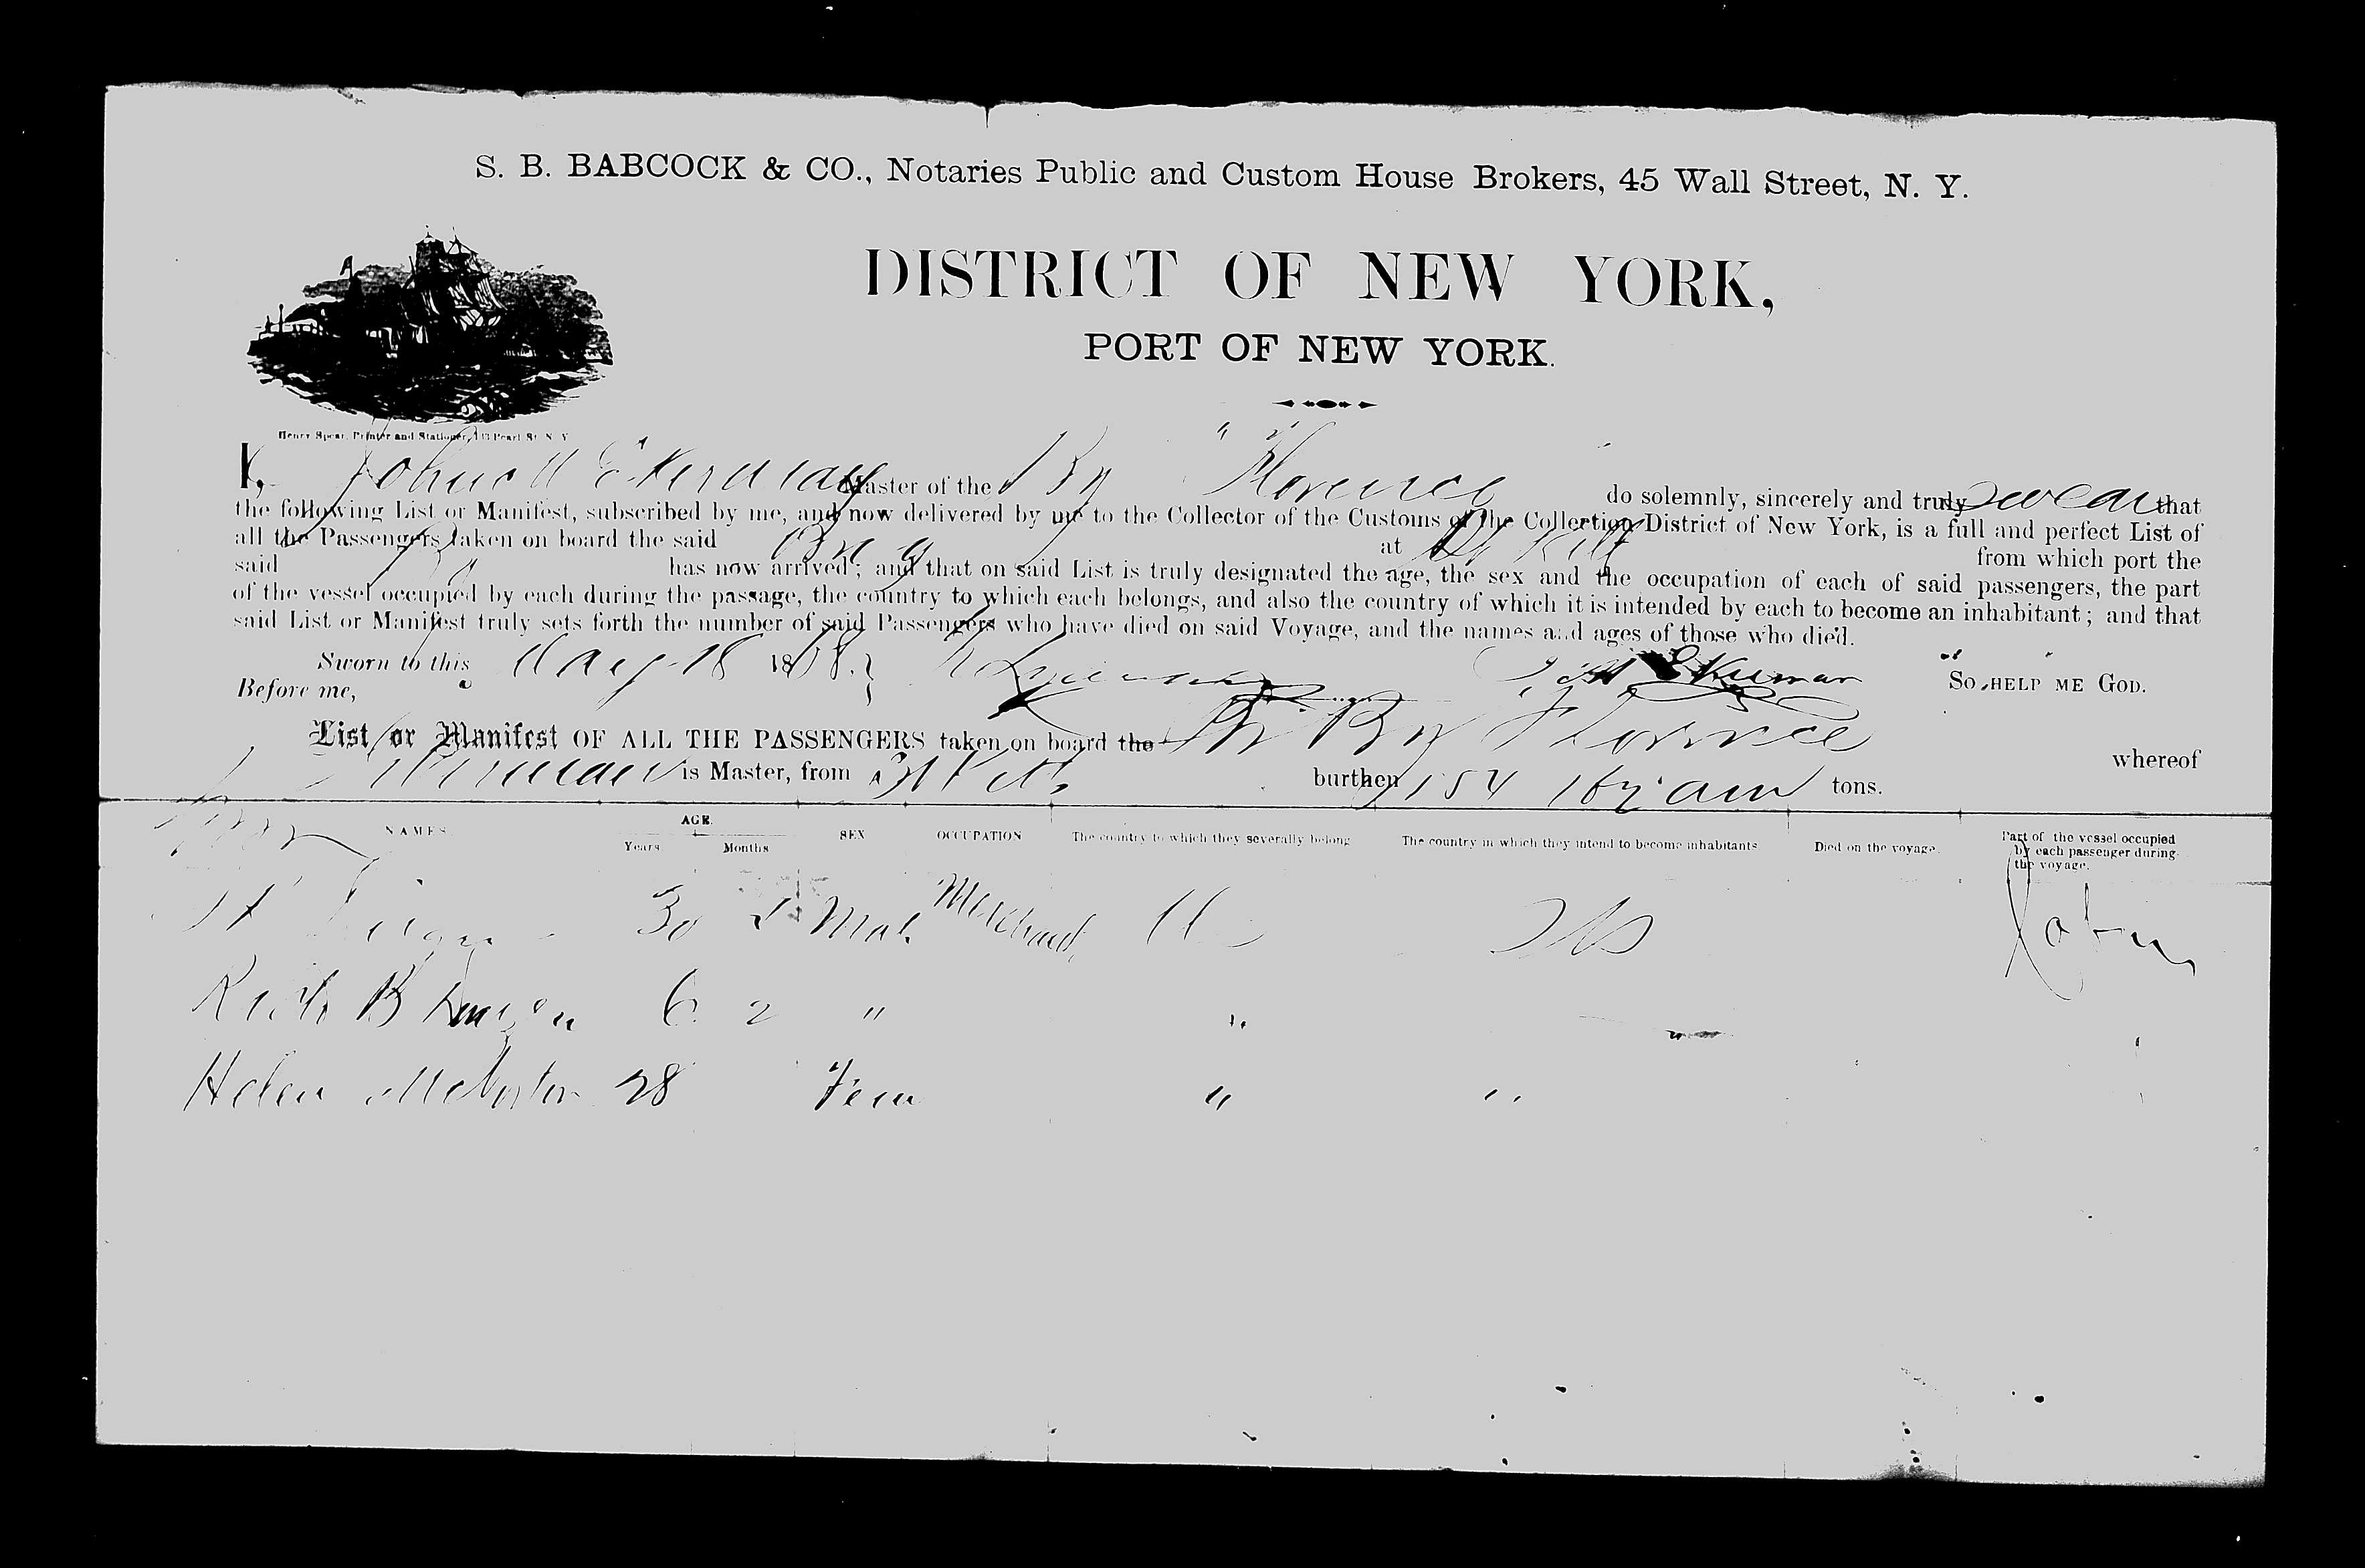 S. B. BABCOCK & CO., Notaries Public and Custom House Brokers, 45 Wall Street, N. Y.
DISTRICT OF NEW YORK,
PORT OF NEW YORK.
Henry Spear, Printer and Stationer, Pearl St. N. Y.
I, Master of the Florence do solemnly, sincerely and truly swear that
the following List or Manifest, subscribed by me, and now delivered by me to the Collector of the Customs of the Collection District of New York, is a full and perfect List of
all the Passengers taken on board the said Brig at St Kitts from which port the
said has now arrived; and that on said List is truly designated the age, the sex and the occupation of each of said passengers, the part
of the vessel occupied by each during the passage, the country to which each belongs, and also the country of which it is intended by each to become an inhabitant; and that
said List or Manifest truly sets forth the number of said Passengers who have died on said Voyage, and the names and ages of those who died.
Sworn to this May 18 1868. So HELP ME GOD.
Before me,
List or Manifest OF ALL THE PASSENGERS taken on board the Br Florence whereof
is Master, from St Kitts burthen 154 tons.
NAMES AGE. Years Months SEX OCCUPATION The country to which they severally belong The country in which they intend to become inhabitants Died on the voyage. Part of the vessel occupied by each passenger during the voyage.
30 Male Merchant US Cabin
B 6 2 " "
Helen 28 Fem " "